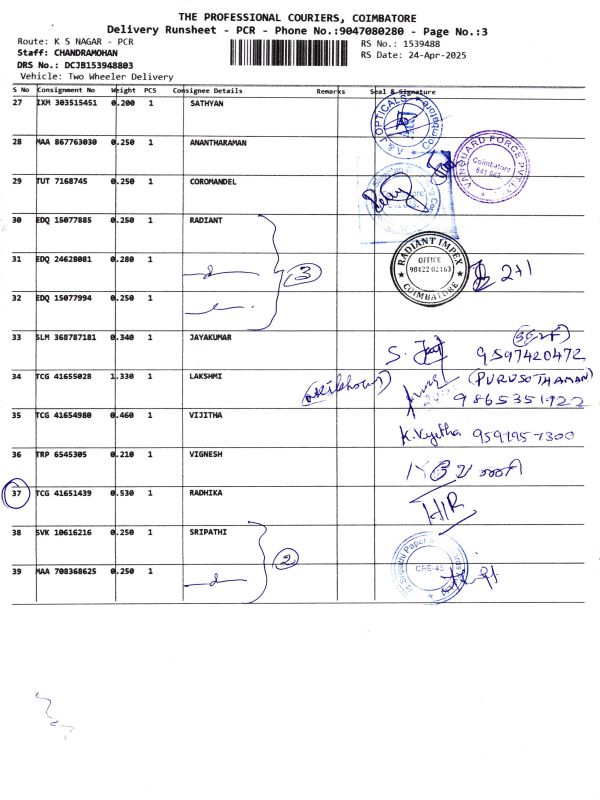 THE PROFESSIONAL COURIERS, COIMBATORE
Delivery Runsheet - PCR - Phone No.:9047080280 - Page No.:3
Route: K S NAGAR - PCR
RS No.: 1539488
Staff: CHANDRAMOHAN
RS Date: 24-Apr-2025
DRS No.: DCJB153948803
Vehicle: Two Wheeler Delivery
S No Consignment No Weight PCS Consignee Details Remarks Seal & Signature
27 IXM 303515451 0.200 1 SATHYAN
A & J OPTICALS Coimbatore
28 MAA 867763030 0.250 1 ANANTHARAMAN
VANGUARD FORCE PVT. LTD. Coimbatore
29 TUT 7168745 0.250 1 COROMANDEL
30 EDQ 15077885 0.250 1 RADIANT
31 EDQ 24628081 0.280 1
3
RADIANT IMPEX OFFICE 98422 02163 COIMBATORE
2+1
32 EDQ 15077994 0.250 1
33 SLM 368787181 0.340 1 JAYAKUMAR
9597420472
34 TCG 41655028 1.330 1 LAKSHMI
(PURUSOTHAMAN)
9865351922
35 TCG 41654980 0.460 1 VIJITHA
K. Vijitha 9591957300
36 TRP 6545305 0.210 1 VIGNESH
37 TCG 41651439 0.530 1 RADHIKA
H/R
38 SVK 10616216 0.250 1 SRIPATHI
2
39 MAA 708368625 0.250 1
CBE-45